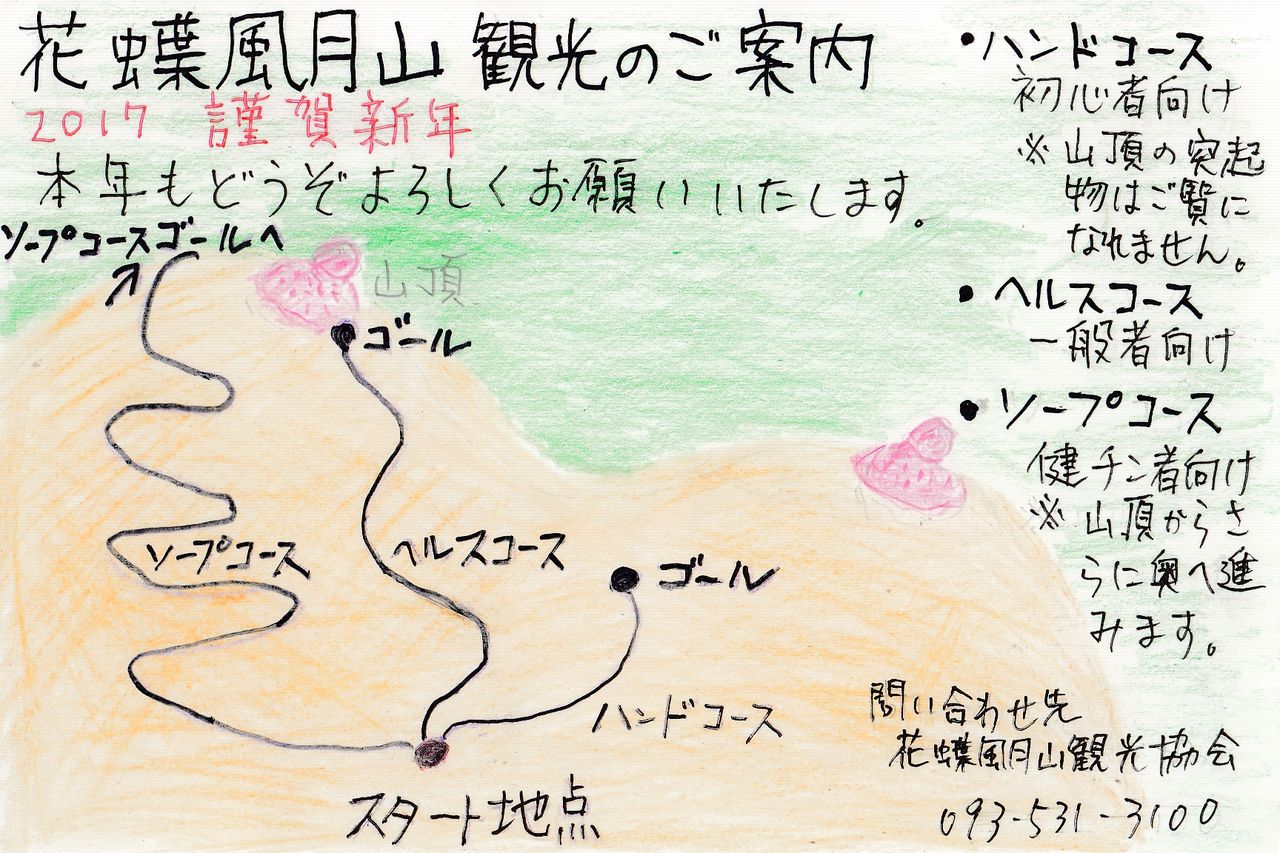 花蝶風月山 観光のご案内
2017 謹賀新年
本年もどうぞよろしくお願いいたします。
ソープコースゴールへ
山頂
ゴール
ソープコース
ヘルスコース
ゴール
ハンドコース
スタート地点
•ハンドコース
初心者向け
※山頂の突起
物はご覧に
なれません。
•ヘルスコース
一般者向け
•ソープコース
健チン者向け
※山頂からさ
らに奥へ進
みます。
問い合わせ先
花蝶風月山観光協会
093-531-3100